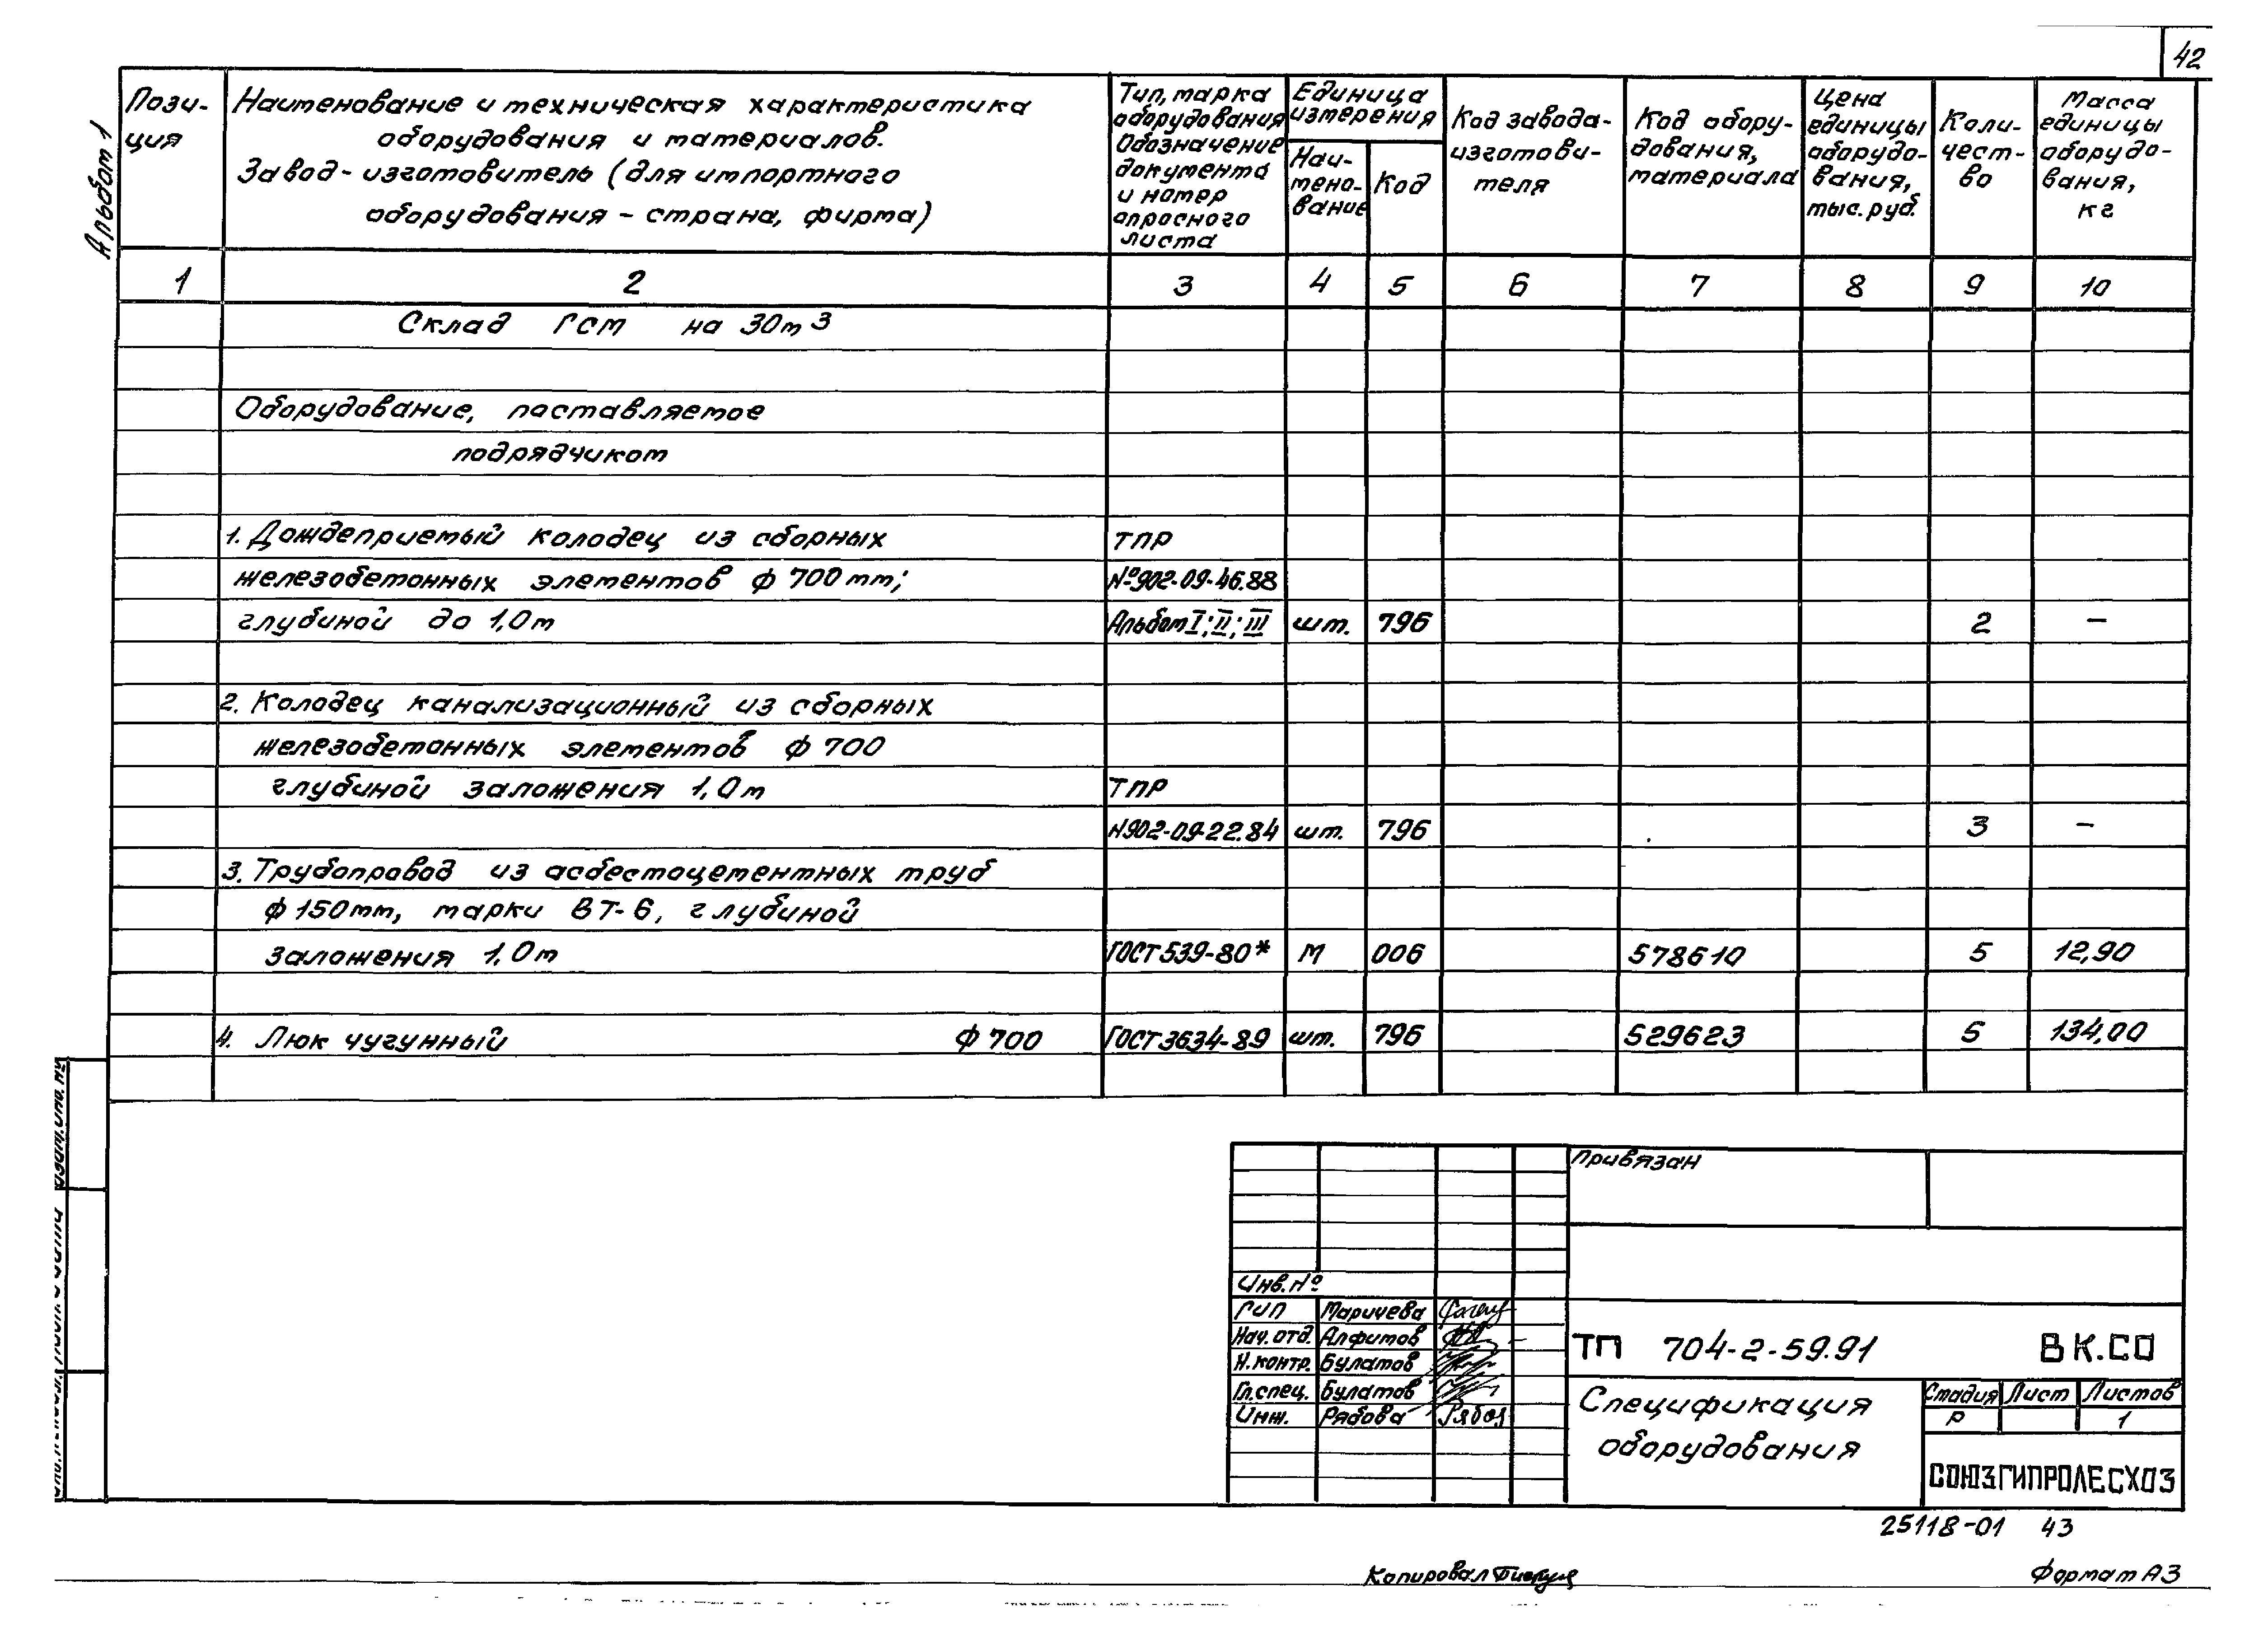 42
Альбом 1
Пози-
ция
Наименование и техническая характеристика
оборудования и материалов.
Завод-изготовитель (для импортного
оборудования - страна, фирма)
Тип, марка
оборудования
Обозначение
документа
и номер
опросного
листа
Единица
измерения
Наи-
мено-
вание
Код
Код завода-
изготови-
теля
Код обору-
дования,
материала
Цена
единицы
оборудо-
вания,
тыс. руб.
Коли-
чест-
во
Масса
единицы
оборудо-
вания,
кг
1 2 3 4 5 6 7 8 9 10
Склад ГСМ на 30м3
Оборудование, поставляемое
подрядчиком
1. Дождеприемый колодец из сборных ТПР
железобетонных элементов ф 700мм; №902-09-46.88
глубиной до 1,0м Альбом I; II; III шт. 796 2 –
2. Колодец канализационный из сборных
железобетонных элементов ф 700
глубиной заложения 1,0м ТПР
N902-09-22.84 шт. 796 3 –
3. Трубопровод из асбестоцементных труб
ф 150мм, марки ВТ-6, глубиной
заложения 1,0м ГОСТ 539-80* М 006 578610 5 12,90
4. Люк чугунный ф 700 ГОСТ 3634-89 шт. 796 529623 5 134,00
Привязан
Инв. №
ГИП Маричева
Нач. отд. Алфимов
Н. контр. Булатов
Гл. спец. Булатов
Инж. Рябова
ТП 704-2-59.91 ВК.СО
Спецификация
оборудования
Стадия Лист Листов
Р 1
СОЮЗГИПРОЛЕСХОЗ
25118-01 43
Копировал
Формат А3